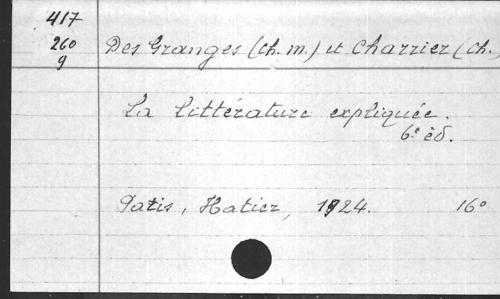 417
260
9
Des Granges (Ch. M.) et Charrier (Ch.
La littérature expliquée.
6e éd.
Paris, Hatier, 1924. 16°